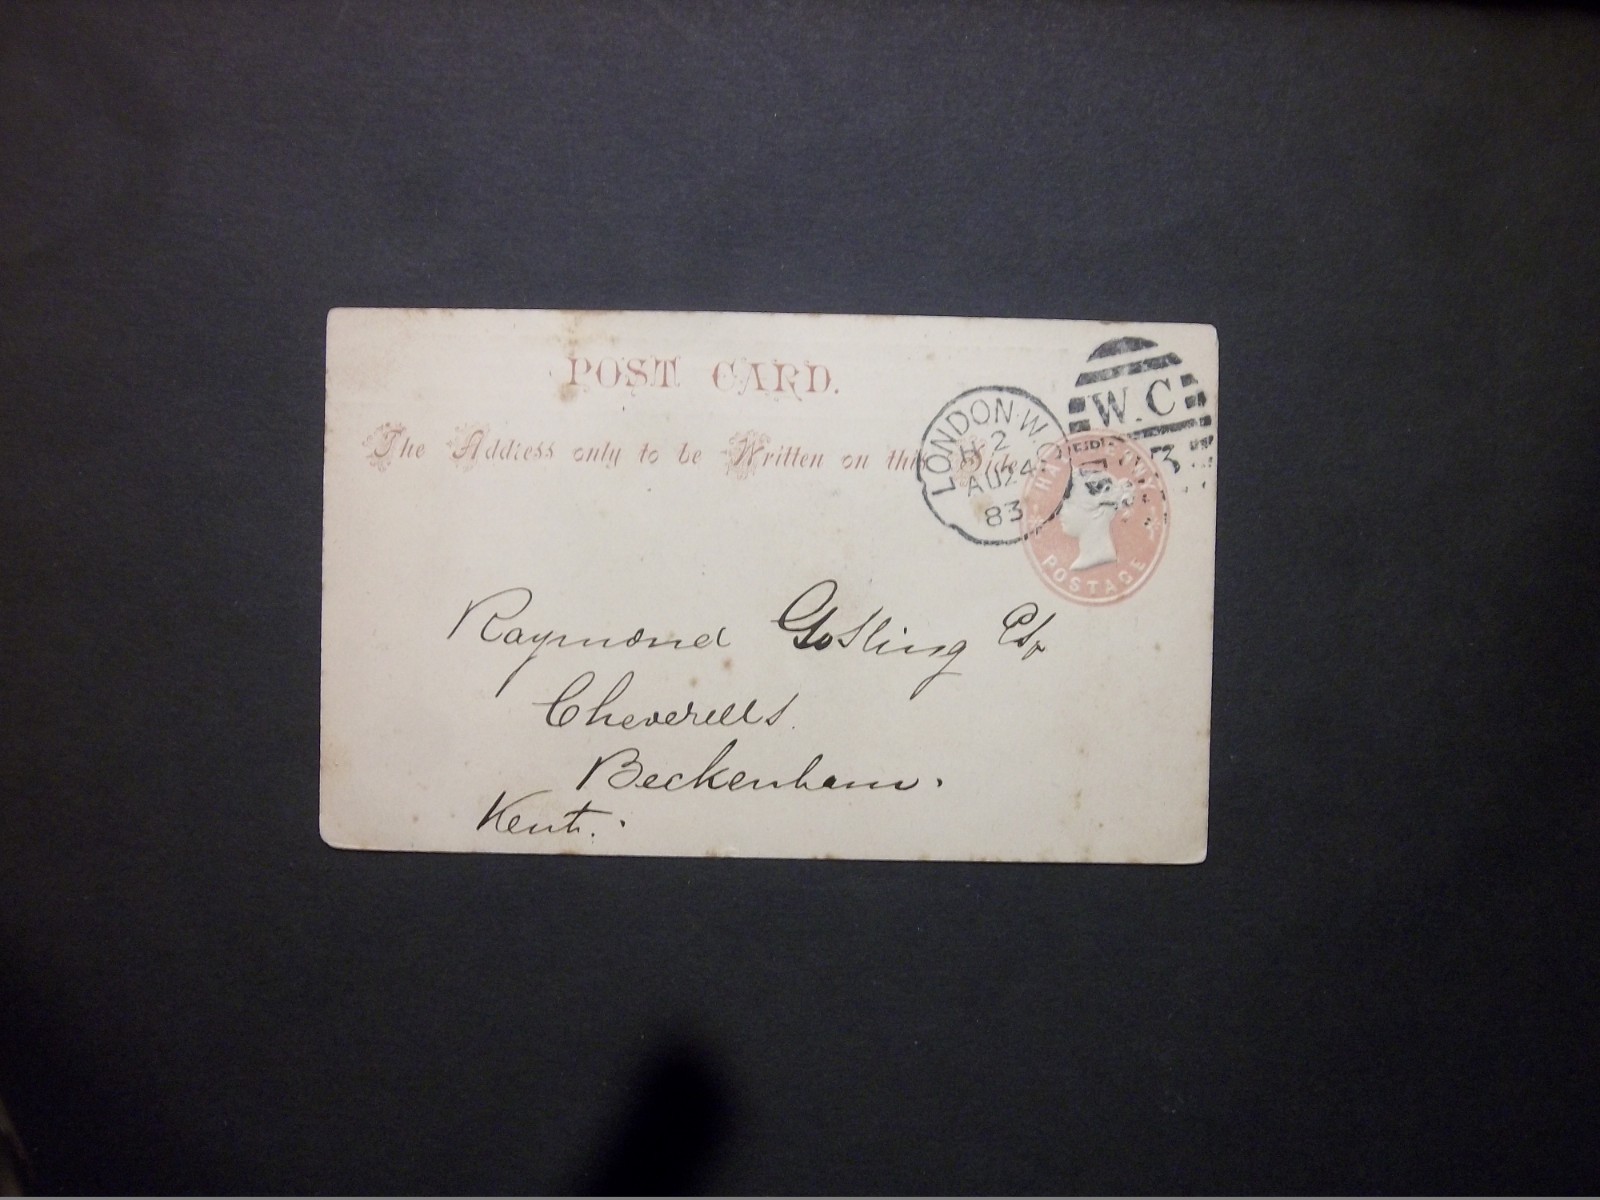 POST CARD.
The Address only to be Written on this Side
LONDON·W.C
2
AU24
83
W.C
3
HALFPENNY
POSTAGE
Raymond Gosling Esq
Cheverells.
Beckenham.
Kent.